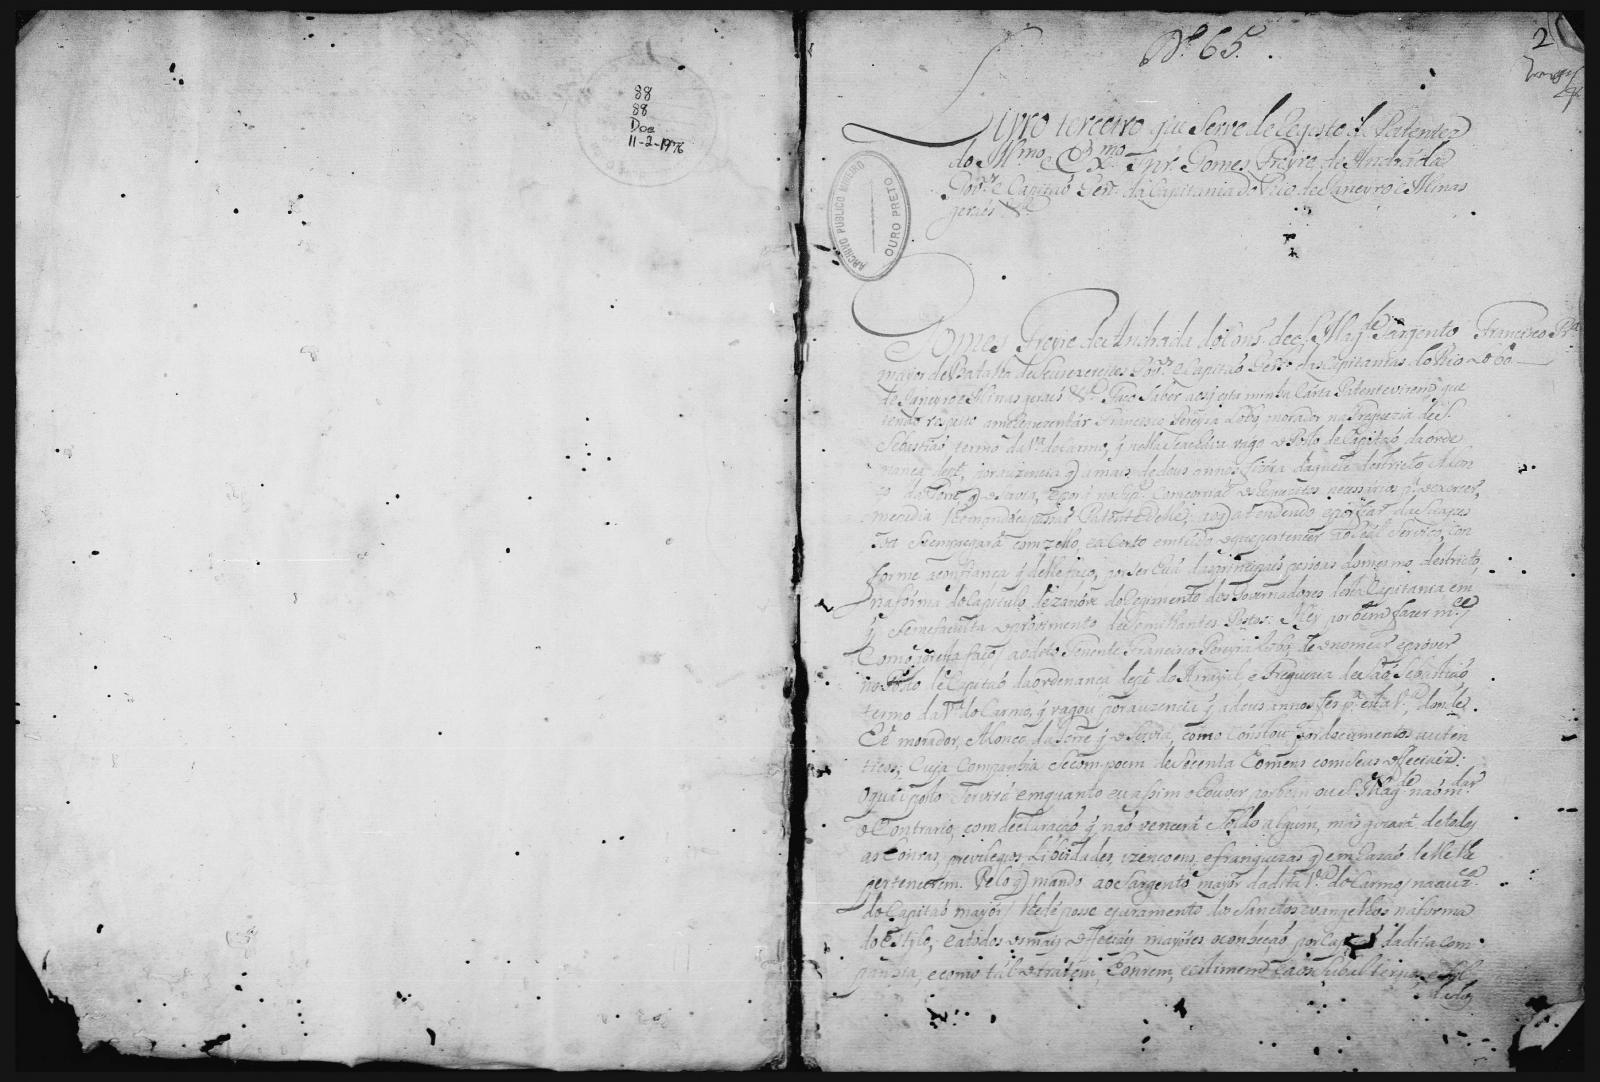 88
88
Doc
11-2-1976
Nº 65.
2
Livro terceiro que serve de Registo de Patentes
do Illmo e Exmo Snr. Gomes Freyre de Andrada
Govor e Capitaó Genl da Capitania do Rio de Janeyro e Minas
geraes &ª
ARCHIVO PUBLICO MINEIRO
OURO PRETO
Gomes Freyre de Andrada do Cons. de S. Magde Sargento
Francisco Prª
Lobo
mayor de Batalha de seus exercitos Govor e Capitaó Genl das Capitanias do Rio
de Janeyro e Minas geraes &ª Faço saber aos q esta minha Carta Patente virem, que
tendo respeito a me Reprezentár Francisco Pereyra Lobo, morador na freguezia de S.
Sebastiaó termo da Vª do Carmo, q nella se achava vago o Posto de Capitaó da orde
nança de pé, por auzencia q a mais de dous annos fizera daquele destricto Alon
ço da Torre q o servia, e por q no sup. concorriaó os Requizitos necessarios pª o exercer,
me pedia lhe mandáce passar Patente delle; ao q atendendo e esperar
se empregará com zello, e acerto em tudo o que pertencer ao Real serviço, con
forme a confiança q delle faço, por ser huá das principaes pesoas do mesmo destricto,
na fórma do Capitulo dezanóve do Regimento dos Governadores desta Capitania em
q se me faculta o provimento de semilhantes Postos: Hey por bem fazer mce
(como por esta faço) ao dito Tenente Francisco Pereyra Lobo, de o nomear e prover
no Posto de Capitaó da ordenança de pé do Arrayal e Freguezia de Saó Sebastiaó
termo da Vª do Carmo, q vagou por auzencia q a dous annos fes pª esta Vª, donde
hé morador, Alonço da Torre q o servia, como constou por documentos auten
ticos; Cuja Companhia se compoem de secenta homens com seus officiaes:
o qual posto servirá emquanto eu assim o houver por bem ou S. Magde naó mdar
o Contrario, com declaraçaó q naó vencerá soldo algum, mas gozará de todas
as honras, previlegios, Liberdades, izençoens, e franquezas q em Razaó delle lhe
pertencerem. Pelo q mando ao Sargento mayor da dita Vª do Carmo (na auzª
do Capitaó mayor) lhe dé posse e juramento dos Sanctos evangelhos na fórma
do estylo, e a todos os mais officiaes mayores o conheçaó por Capam da dita com
panhia, e como tal o tratem, honrem, e estimem e aos subalternos, e sol
dados